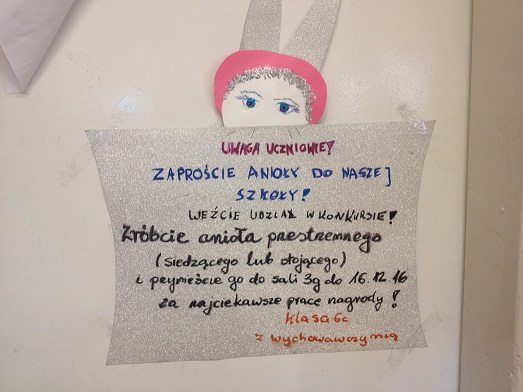 UWAGA UCZNIOWIE!
ZAPROŚCIE ANIOŁY DO NASZEJ
SZKOŁY!
WEŹCIE UDZIAŁ W KONKURSIE!
Zróbcie anioła przestrzennego
(siedzącego lub stojącego)
i przynieście go do sali 39 do 16.12.16
za najciekawsze prace nagrody!
klasa 6c
z wychowawczynią